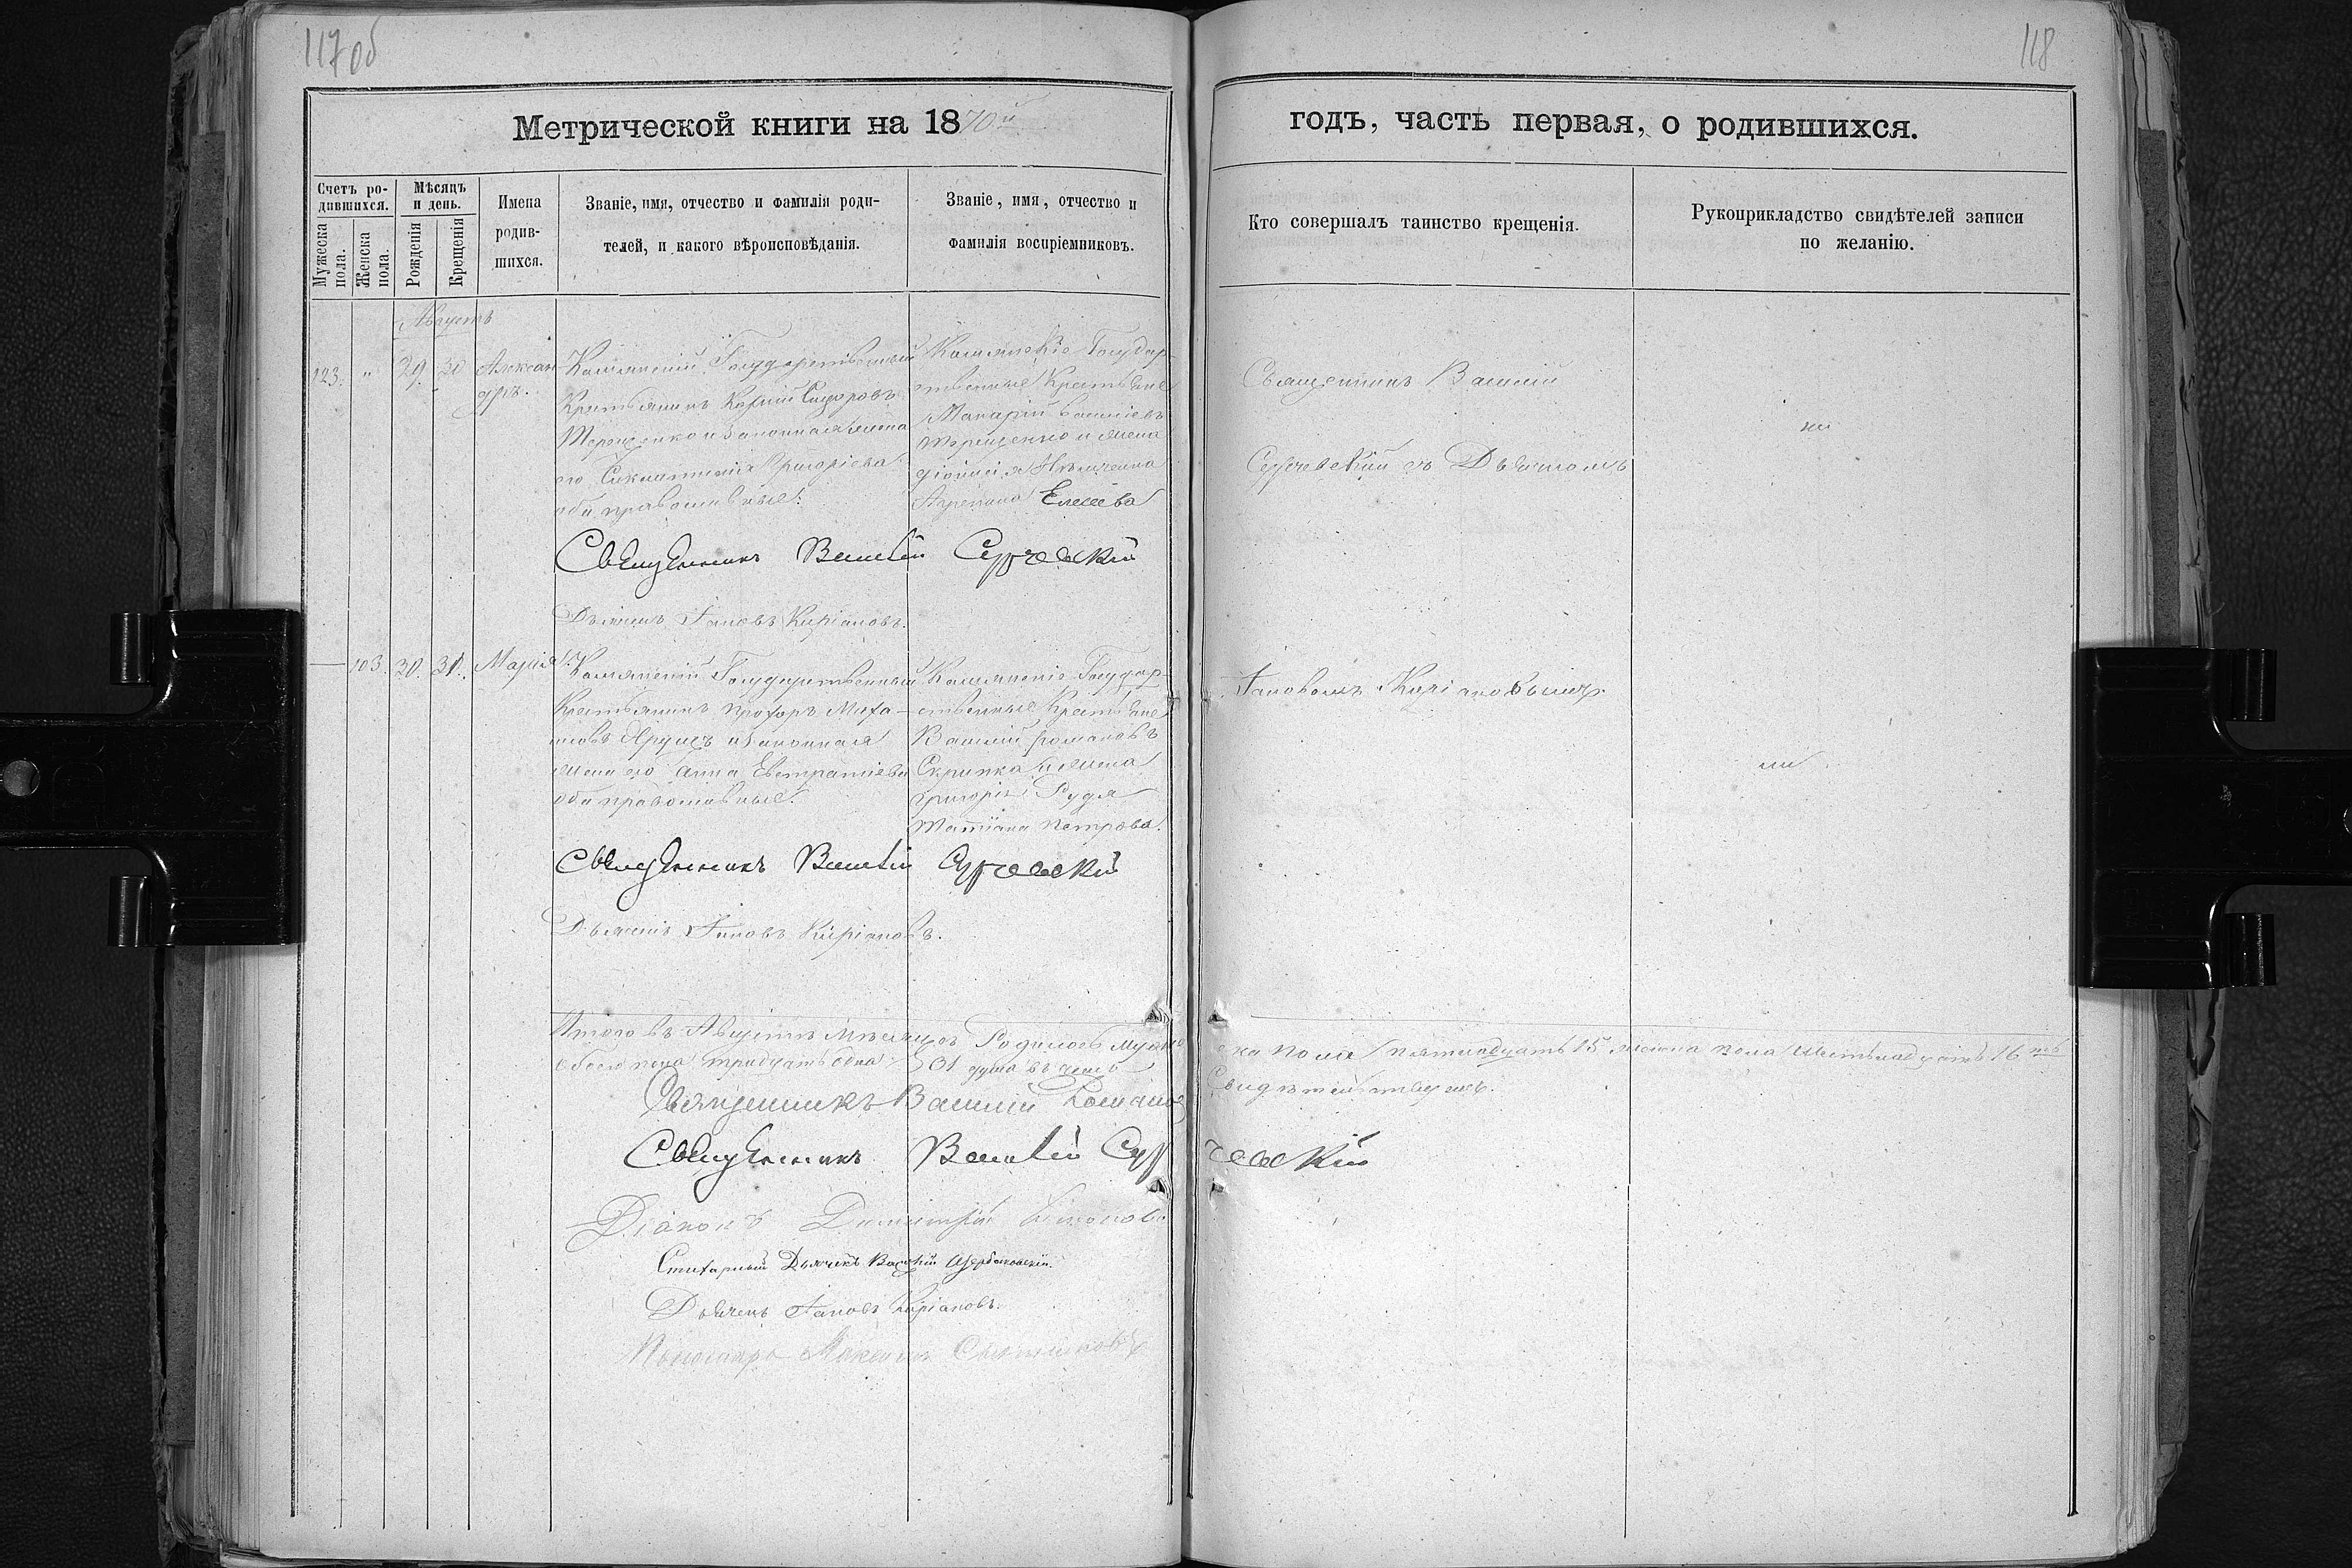 117 об
118
Метрической книги на 1870й
годъ, часть первая, о родившихся.
Счетъ ро-
дившихся.
Мужеска пола.
Женска пола.
Мѣсяцъ
и день.
Рожденія
Крещенія
Имена
родив-
шихся.
Званіе, имя, отчество и фамилія роди-
телей, и какого вѣроисповѣданія.
Званіе, имя, отчество и
фамилія воспріемниковъ.
Кто совершалъ таинство крещенія.
Рукоприкладство свидѣтелей записи
по желанію.
Августъ
123. " 29. 30 Александръ.
Государственный
Крестьянинъ Сидоровъ
Терещенко и Законная жена
его Григоріева
оба православные.
Государ-
ственные Крестьяне
Макарій Василіевъ
Терещенко и жена
Елисеева
Священникъ Василій
Сурчевскій съ Дьячкомъ
Священникъ Василій Сурчевскій
Дьячекъ Іаковъ Киріановъ.
— 103. 30. 31. Марія
Государственный
Крестьянинъ Прохоръ
Ярушъ и Законная
жена его Анна Евстратіева
оба православные.
Государ-
ственные Крестьяне
Василій Романовъ
Скрипка и жена
Григорія Рудя
Татіана Петрова.
Іаковомъ Киріановымъ.
Священникъ Василій Сурчевскій
Дьячекъ Іаковъ Киріановъ.
Итого въ Августѣ мѣсяцѣ Родилось мужеска пола пятнадцать 15 женска пола шестнадцать 16
обоего пола тридцать одна 31 душа въ чемъ Свидѣтельствуемъ.
Священникъ Василій
Священникъ Василій Сурчевскій
Діаконъ Димитрій
Стихарный Дьячекъ Василій Щербаковскій.
Дьячекъ Іаковъ Киріановъ.
Пономарь Максимъ